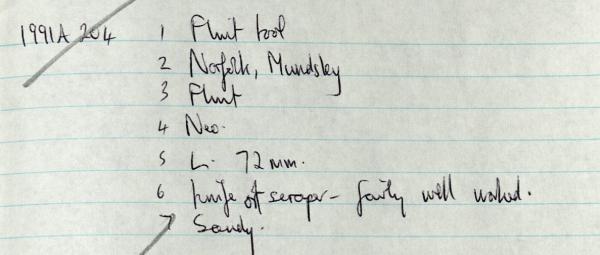 1991A 204 1 Flint tool
2 Norfolk, Mundsley
3 Flint
4 Neo.
5 L. 72 mm.
6 knife or scraper - fairly well worked.
7 Sandy.